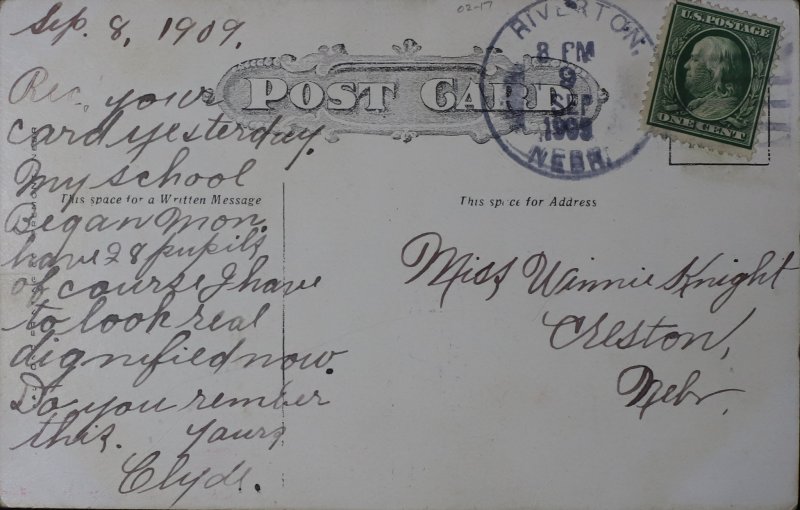 Sep. 8, 1909.
Rec. your
card yesterday.
My school
Began Mon.
have 28 pupils
of course I have
to look real
dignified now.
Do you rember
this. Yours
Clyde.
02-17
POST CARD
This space for a Written Message
This space for Address
RIVERTON,
8 PM
9
SEP
1909
NEBR.
U.S. POSTAGE
ONE CENT
Miss Winnie Knight
Creston,
Nebr.